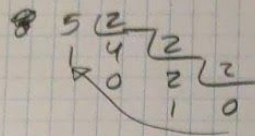 5 2
1 4 2
0 2 2
1 0